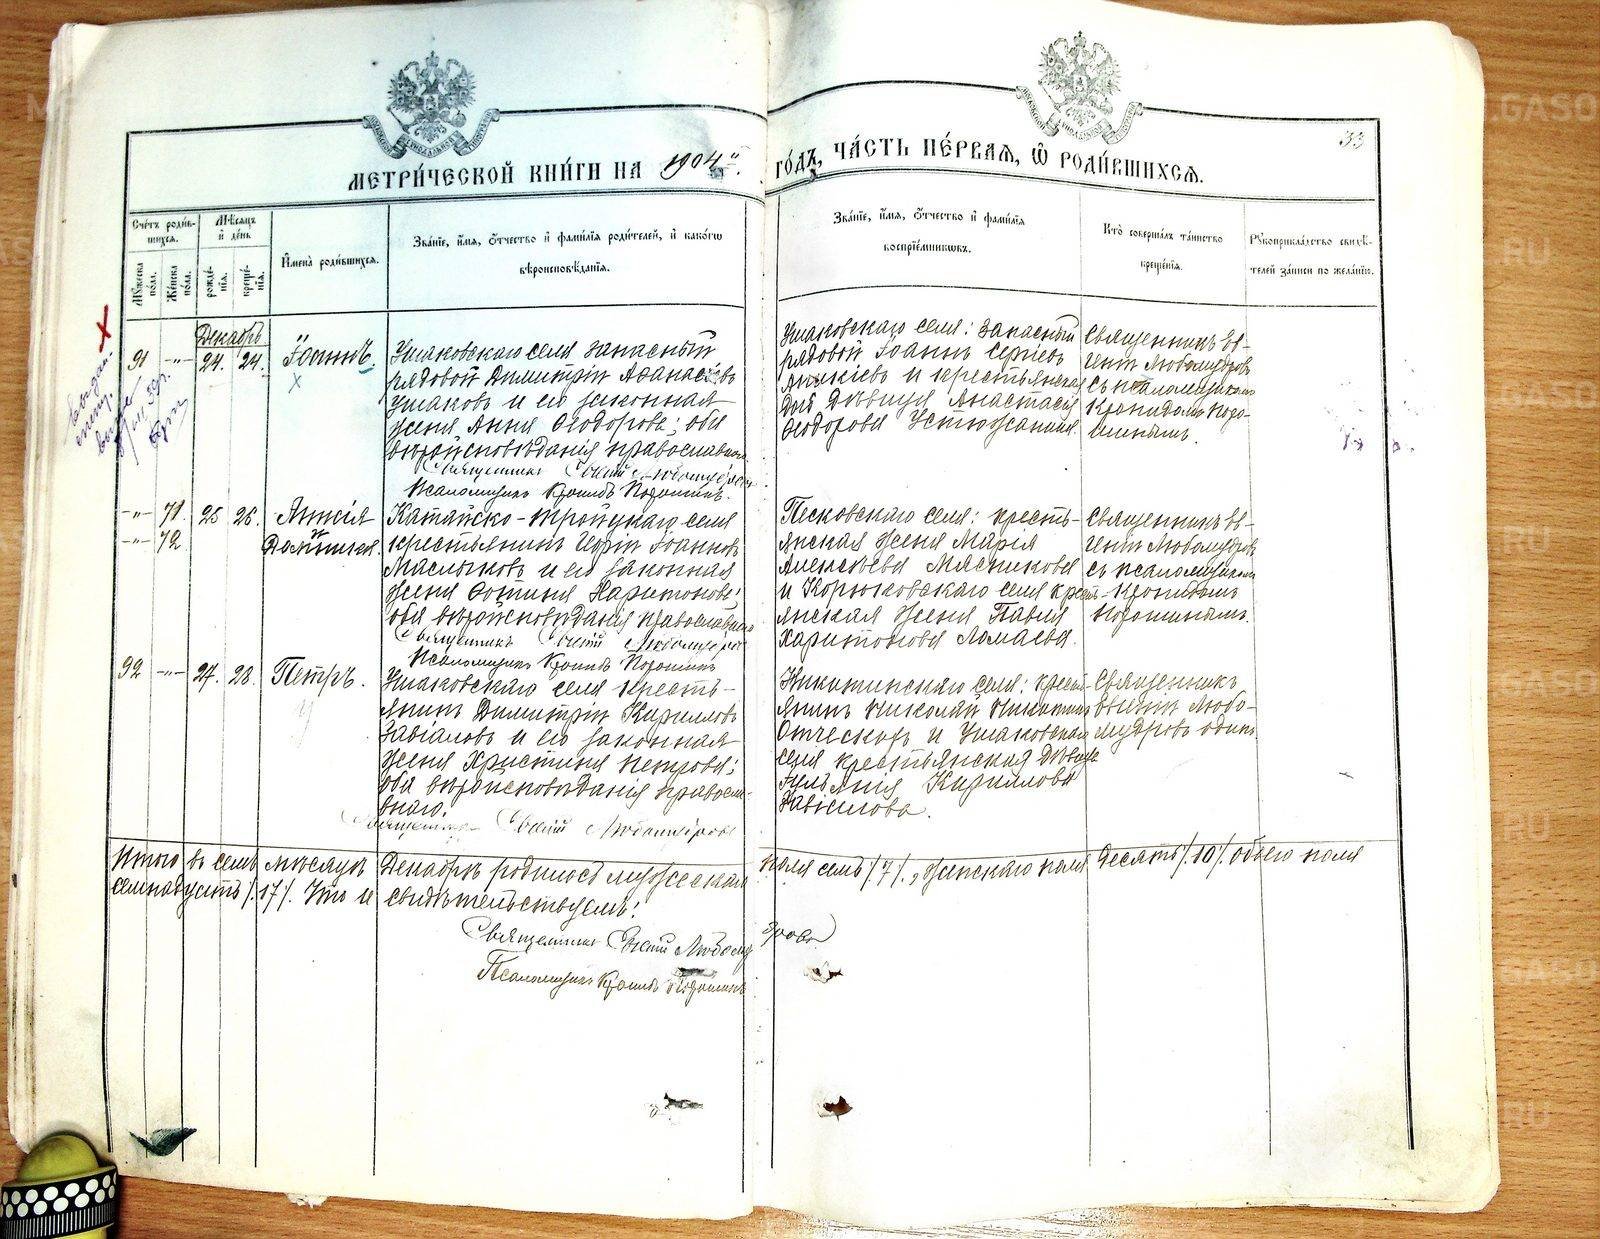 МЕТРИ́ЧЕСКОЙ КНИ́ГИ НА 1904й ГО́ДЪ, ЧА́СТЬ ПЕ́РВАЯ, Ѽ РОДИ́ВШИХСѦ.
33
Сче́тъ роди́в-
шихсѧ.
Мꙋ́жеска по́ла.
Же́нска по́ла.
Мѣ́сѧцъ
и҆ де́нь
рожде́-
нїѧ.
креще́-
нїѧ.
И҆мена̀ роди́вшихсѧ.
Зва́нїе, и҆́мѧ, ѻ҆́тчество и҆ фами́лїѧ роди́телей, и҆ како́гѡ
вѣроисповѣ́данїѧ.
Зва́нїе, и҆́мѧ, ѻ҆́тчество и҆ фами́лїѧ
воспрїе́мникѡвъ.
Кто̀ соверша́лъ та́инство
креще́нїѧ.
Рꙋкоприкла́дство свидѣ́-
телей за́писи по жела́нїю.
Декабрь
91 -"- 24. 24. Іоаннъ.
Ушаковскаго села запасный
рядовой Димитрій Аѳанасіевъ
Ушаковъ и его законная
жена Анна Ѳеодорова; оба
вѣроисповѣданія православнаго.
Священникъ Евгеній Любомудровъ
Псаломщикъ Кронидъ Порошинъ.
Ушаковскаго села: запасный
рядовой Іоаннъ Сергіевъ
и крестьянская
дѣвица Анастасія
Ѳеодорова Устюжанина.
Священникъ Ев-
геній Любомудровъ
съ псаломщикомъ
Кронидомъ Поро-
шинымъ.
-"- 71 25 26. Анисія
-"- 72 и Домника.
Катайско-Троицкаго села
крестьянинъ Іоанновъ
Маслыковъ и его законная
жена Фотинія Харитонова;
оба вѣроисповѣданія православнаго
Священникъ Евгеній Любомудровъ
Псаломщикъ Кронидъ Порошинъ
Песковскаго села: кресть-
янская жена Марія
Алексѣева Мясникова
и Корюковскаго села крест-
янская жена Павла
Харитонова Ломаева.
Священникъ Ев-
геній Любомудровъ
съ псаломщикомъ
Кронидомъ
Порошинымъ.
92 -"- 27. 28. Петръ.
Ушаковскаго села кресть-
янинъ Димитрій Кирилловъ
Завіаловъ и его законная
жена Христина Петрова;
оба вѣроисповѣданія правосла-
внаго.
Священникъ Евгеній Любомудровъ
Никитинскаго села: крест-
янинъ Николай Никитинъ
и Ушаковскаго
села крестьянская дѣвица
Кириллова
Завіалова.
Священникъ
Евгеній Любо-
мудровъ одинъ
Итого въ семъ мѣсяцѣ Декабрѣ родилось мужескаго пола семь /7/, женскаго пола десять /10/. обоего пола
семнадцать /17/. Что и свидѣтельствуемъ:
Священникъ Евгеній Любомудровъ
Псаломщикъ Кронидъ Порошинъ